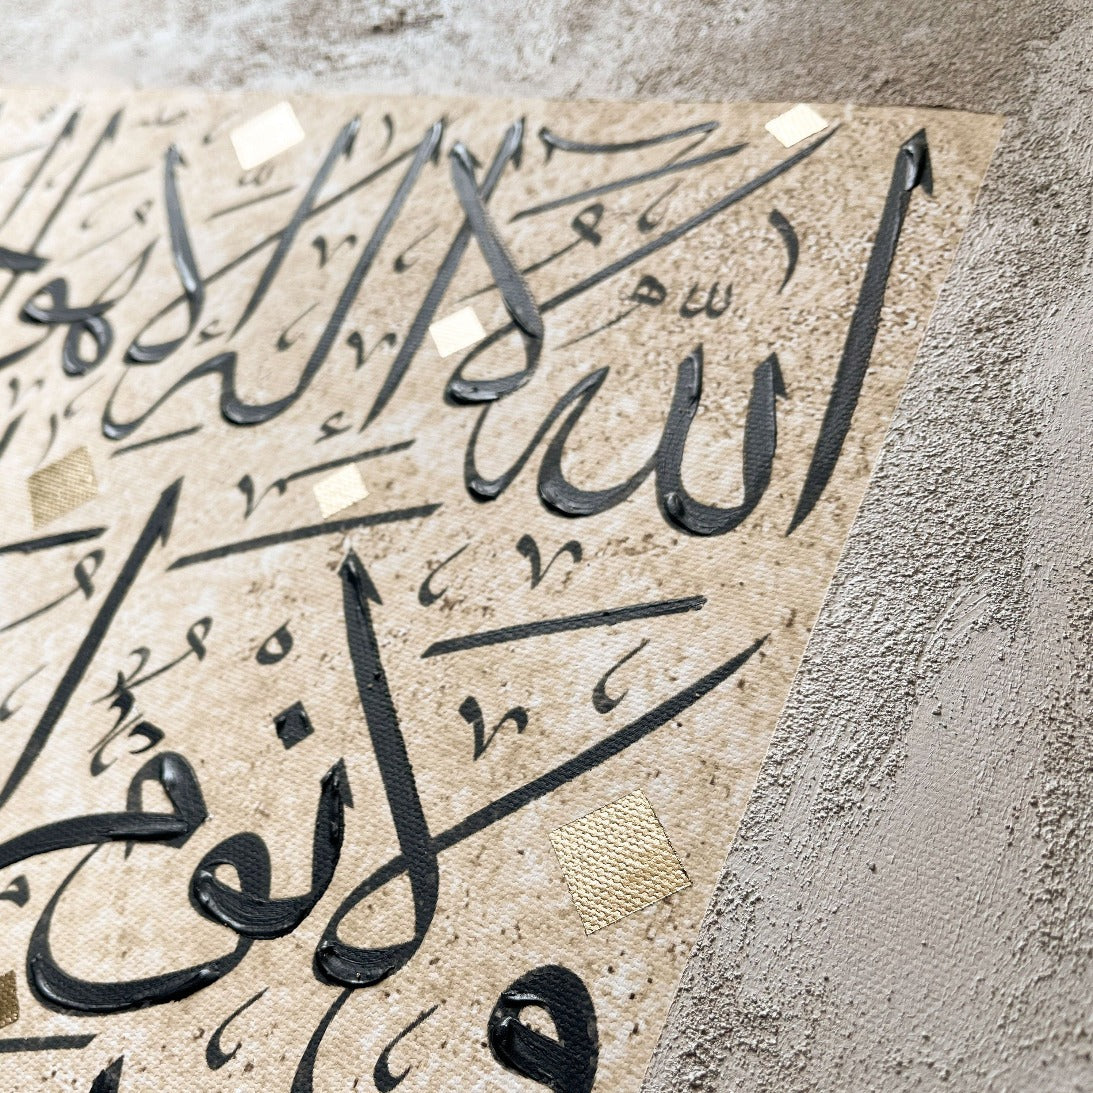 الله لا إله إلا هو
ولا نوم